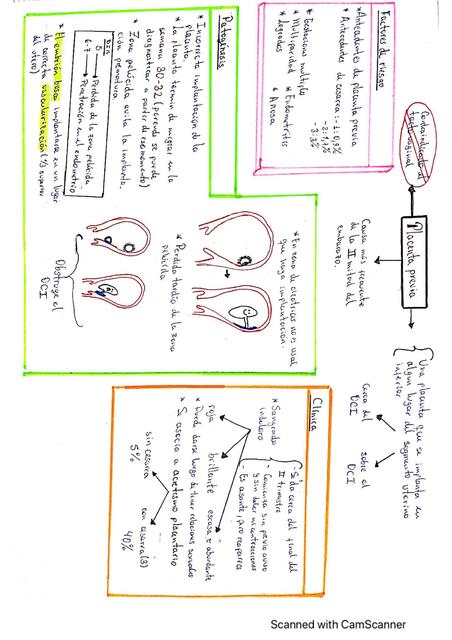 Contraindicado el
tacto vaginal
Placenta previa
Una placenta que se implanta en
algún lugar del segmento uterino
inferior
Cerca del
OCI
sobre el
OCI
Causa más frecuente
de la II mitad del
embarazo.
Factores de riesgo
*Antecedentes de placenta previa
*Antecedentes de cesarea:
-1: 0,9%
-2: 1,7%
-3: 3%
*Embarazo multiple
*Multiparidad
*Endometritis
*Legrados
*Añosa
Patogénesis
*Incorrecta implantación de la
placenta.
*La placenta termina de migrar en la
semana 30-32 (
diagnosticar a partir de ese momento)
*Zona pelúcida evita la implanta-
ción prematura.
DIA
5 Pérdida de la zona pelúcida
6-7 Penetración en el endometrio
*El embrión busca implantarse en un lugar
de correcta vascularización (⅓ superior
del útero)
*En zona de cicatrices no es usual
que haya implantación.
*Perdida tardía de la zona
pelúcida
Obstruye el
OCI
Clínica
*Sangrado
indoloro
- Se da cerca del final del
II trimestre
- Comienza sin previo aviso
y sin haber ni contracciones
- Es asante, pero reaparece
roja
brillante
escasa o abundante
*Puede darse luego de tener relaciones sexuales
*Se asocia a acretismo placentario
sin cesarea
5%
con cesarea(s)
40%
Scanned with CamScanner